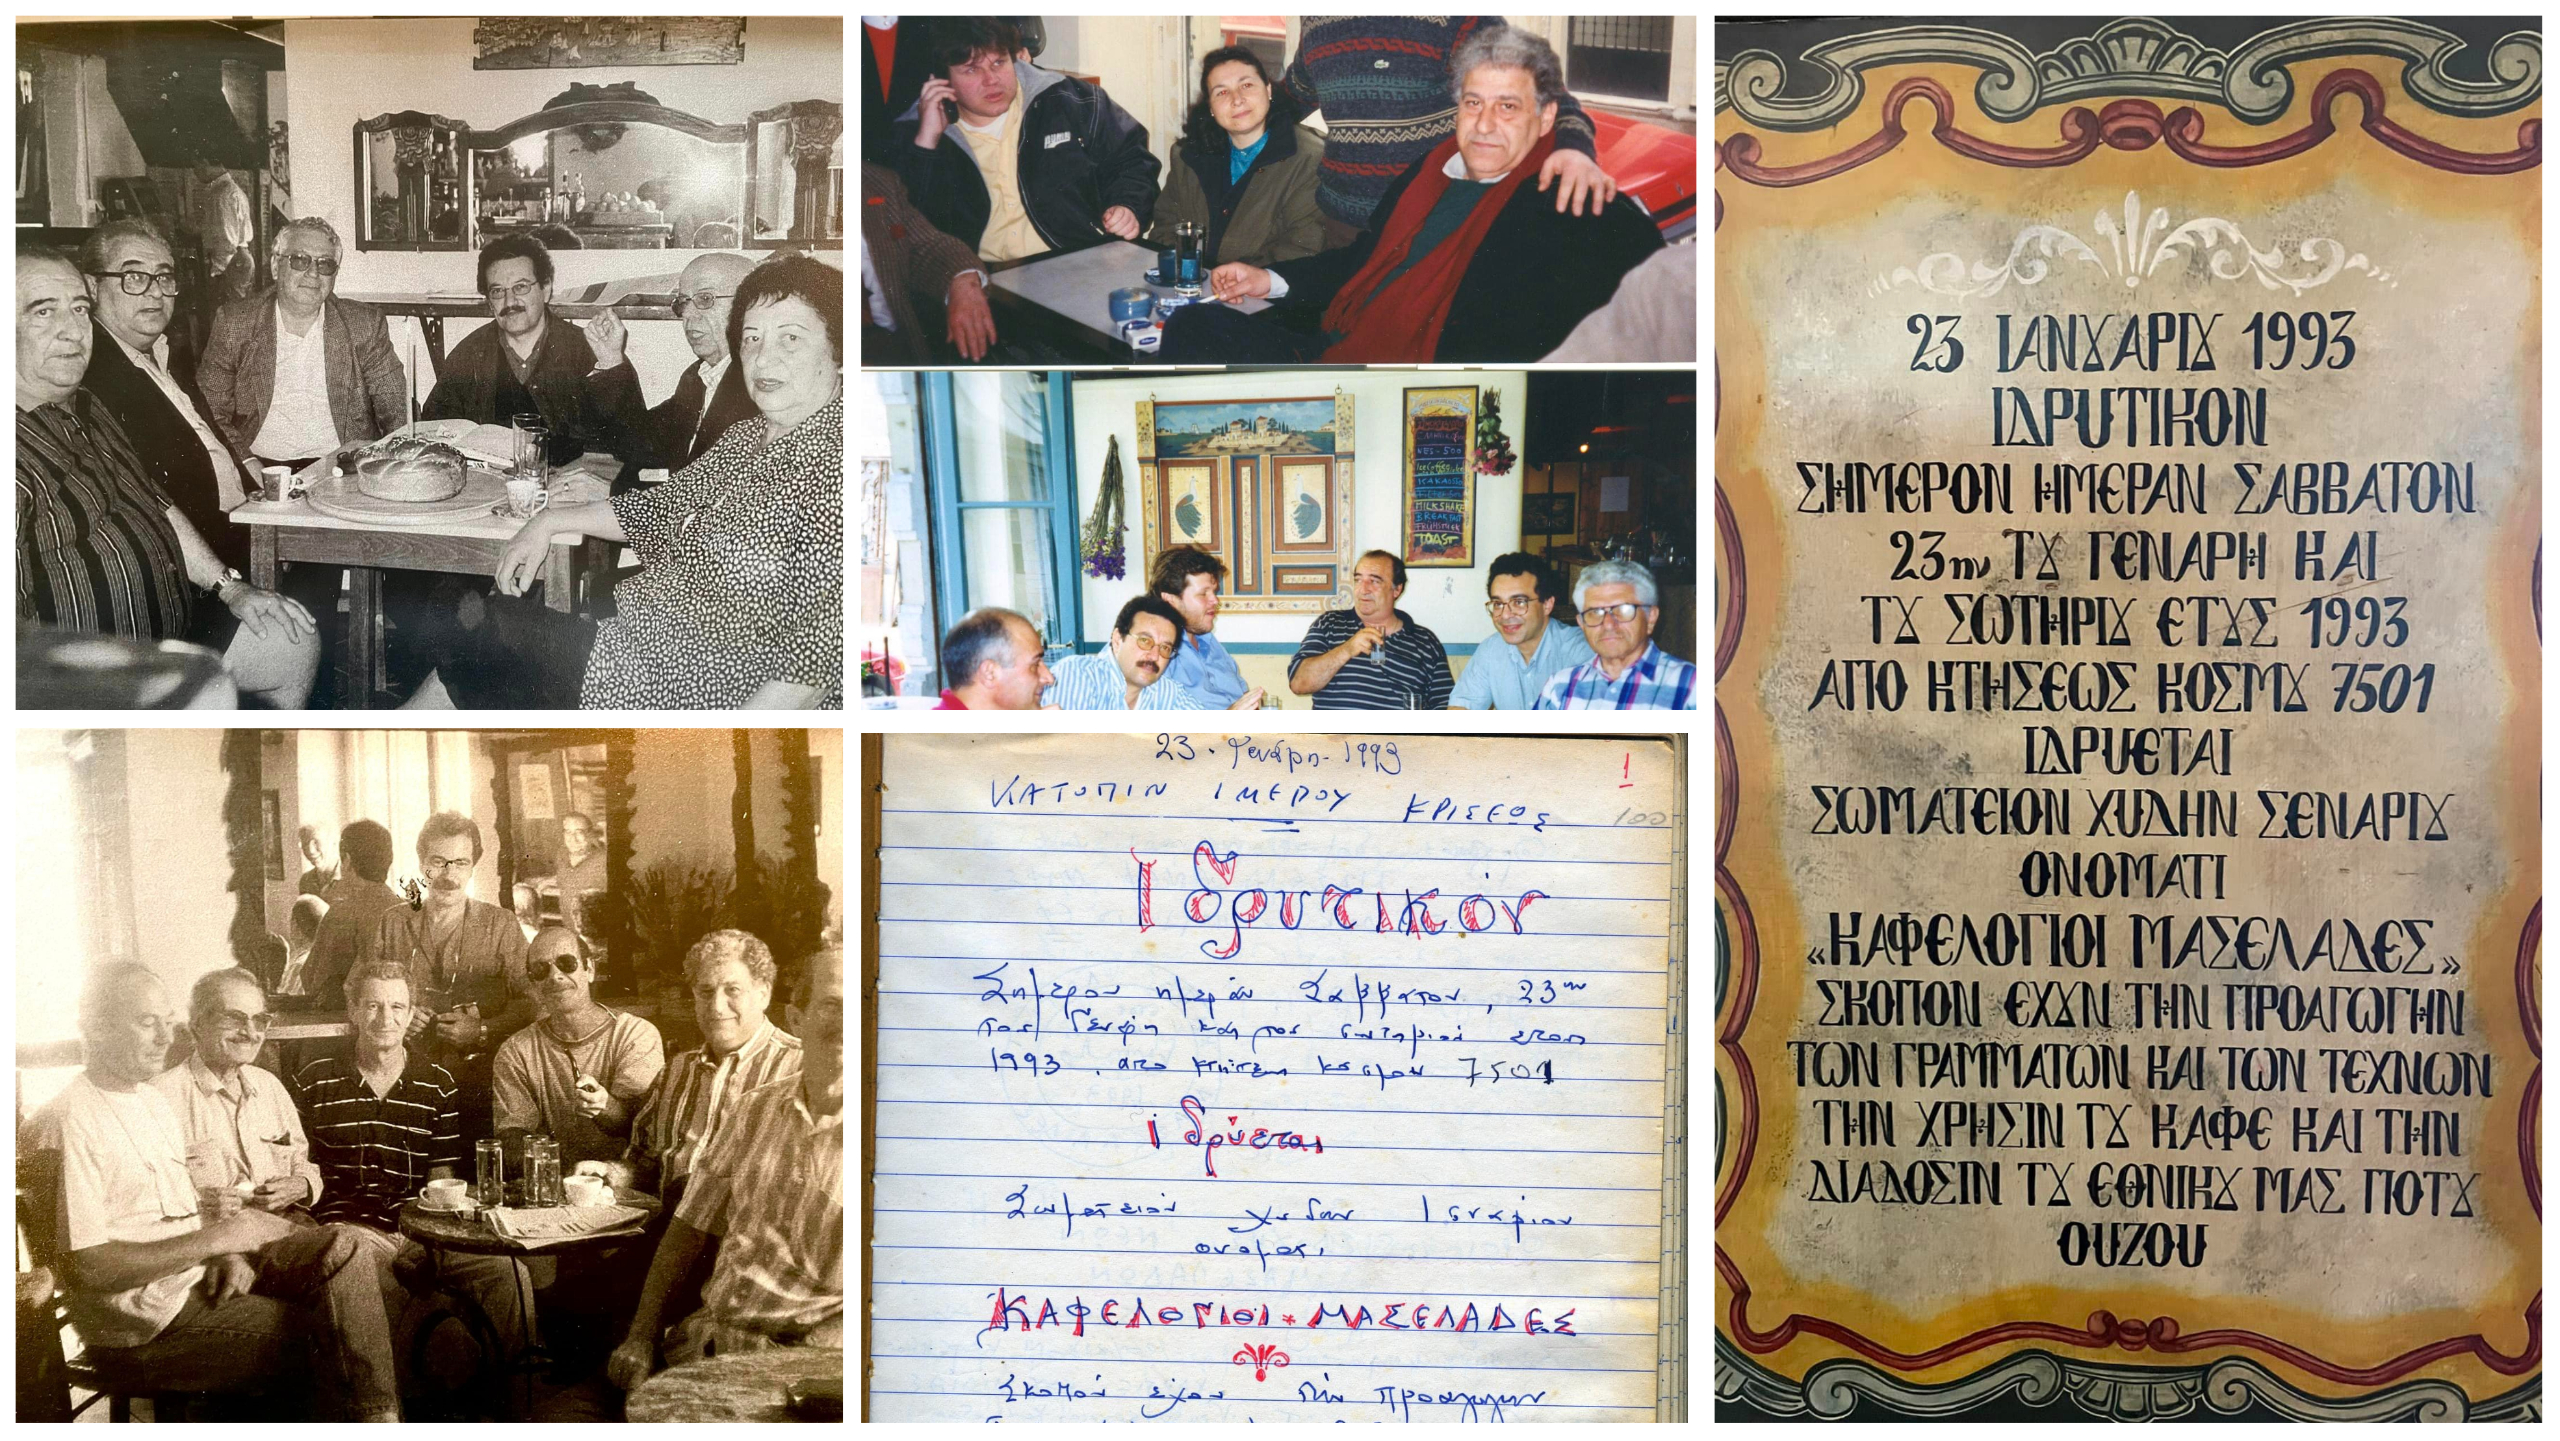 ΚΑΚΑΟ
MILKSHAKE
BREAKFAST
FRÜHSTÜCK
TOAST
23 · Γενάρη · 1993
1
100
ΚΑΤΟΠΙΝ ΙΜΕΡΟΥ ΚΡΙΣΕΟΣ
Ιδρυτικόν
Σήμερον ημεράν Σαββατον, 23ην
του Γενάρη και του σωτηρίου ετους
1993, απο κτήσεως κοσμου 7501
ιδρύεται
Σωματείον χυδην
ονοματι
ΚΑΦΕΛΟΓΙΟΙ * ΜΑΣΕΛΑΔΕΣ
Σκοπόν εχον την προαγωγην
23 ΙΑΝȢΑΡΙȢ 1993
ΙΔΡΥΤΙΚΟΝ
ΣΗΜΕΡΟΝ ΗΜΕΡΑΝ ΣΑΒΒΑΤΟΝ
23ην ΤȢ ΓΕΝΑΡΗ ΚΑΙ
ΤȢ ΣΩΤΗΡΙȢ ΕΤȢΣ 1993
ΑΠΟ ΚΤΗΣΕΩΣ ΚΟΣΜȢ 7501
ΙΔΡΥΕΤΑΙ
ΣΩΜΑΤΕΙΟΝ ΧΥΔΗΝ ΣΕΝΑΡΙȢ
ΟΝΟΜΑΤΙ
«ΚΑΦΕΛΟΓΙΟΙ ΜΑΣΕΛΑΔΕΣ»
ΣΚΟΠΟΝ ΕΧȢΝ ΤΗΝ ΠΡΟΑΓΩΓΗΝ
ΤΩΝ ΓΡΑΜΜΑΤΩΝ ΚΑΙ ΤΩΝ ΤΕΧΝΩΝ
ΤΗΝ ΧΡΗΣΙΝ ΤȢ ΚΑΦΕ ΚΑΙ ΤΗΝ
ΔΙΑΔΟΣΙΝ ΤȢ ΕΘΝΙΚȢ ΜΑΣ ΠΟΤȢ
ΟΥΖΟΥ